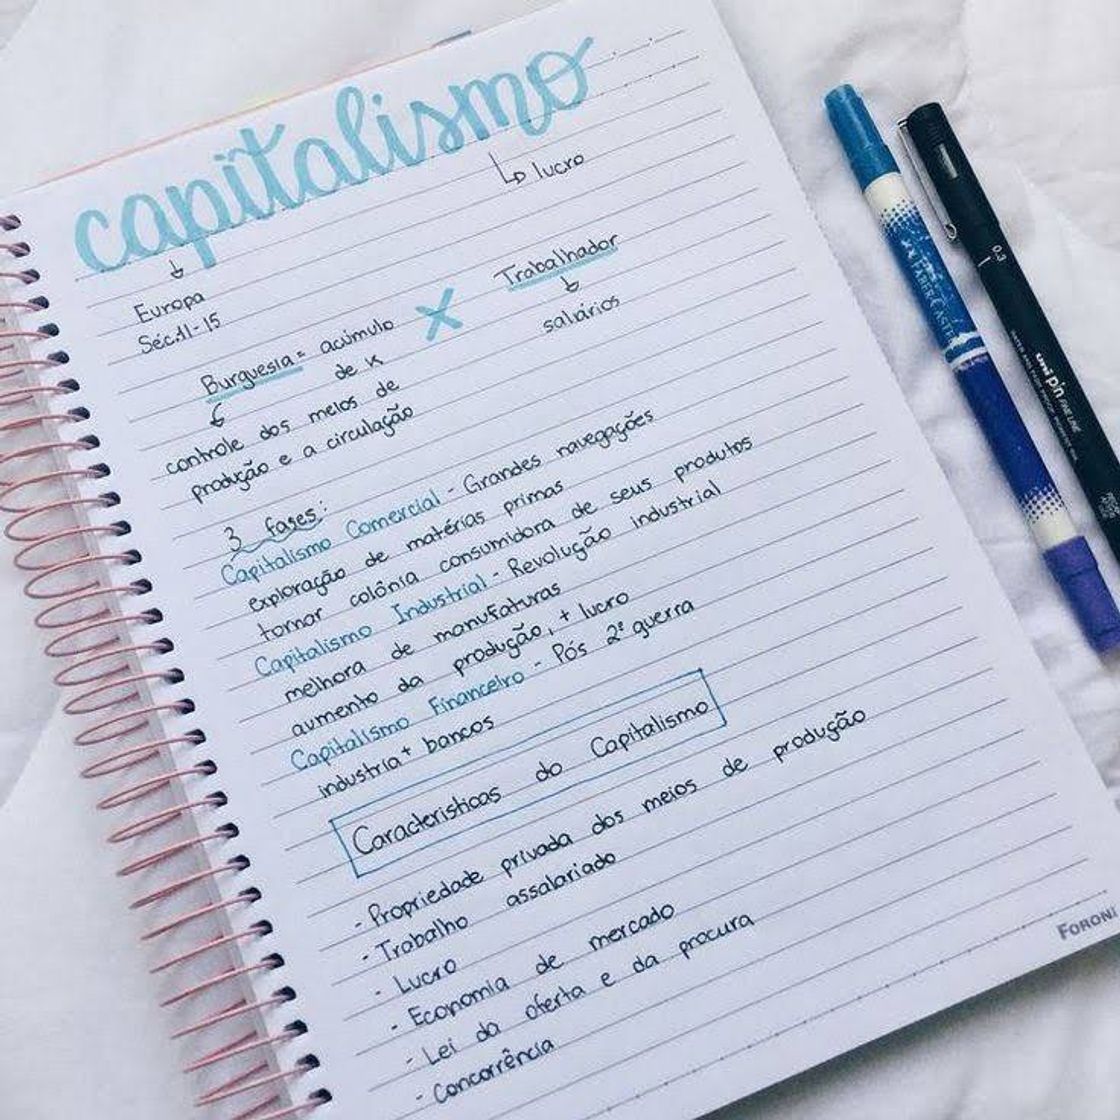 capitalismo
↳ lucro
↓
Europa
Séc.11-15
Burguesia = acúmulo
de K
X
Trabalhador
↓
salários
controle dos meios de
produção e a circulação
3 fases:
Capitalismo Comercial - Grandes navegações
exploração de matérias primas
tornar colônia consumidora de seus produtos
Capitalismo Industrial - Revolução industrial
melhora de manufaturas
aumento da produção, + lucro
Capitalismo Financeiro - Pós 2ª guerra
industria + bancos
Caracteristicas do Capitalismo
- Propriedade privada dos meios de produção
- Trabalho assalariado
- Lucro
- Economia de mercado
- Lei da oferta e da procura
- Concorrência
FORON
FABER-CASTELL
0.3
uni pin FINE LINE